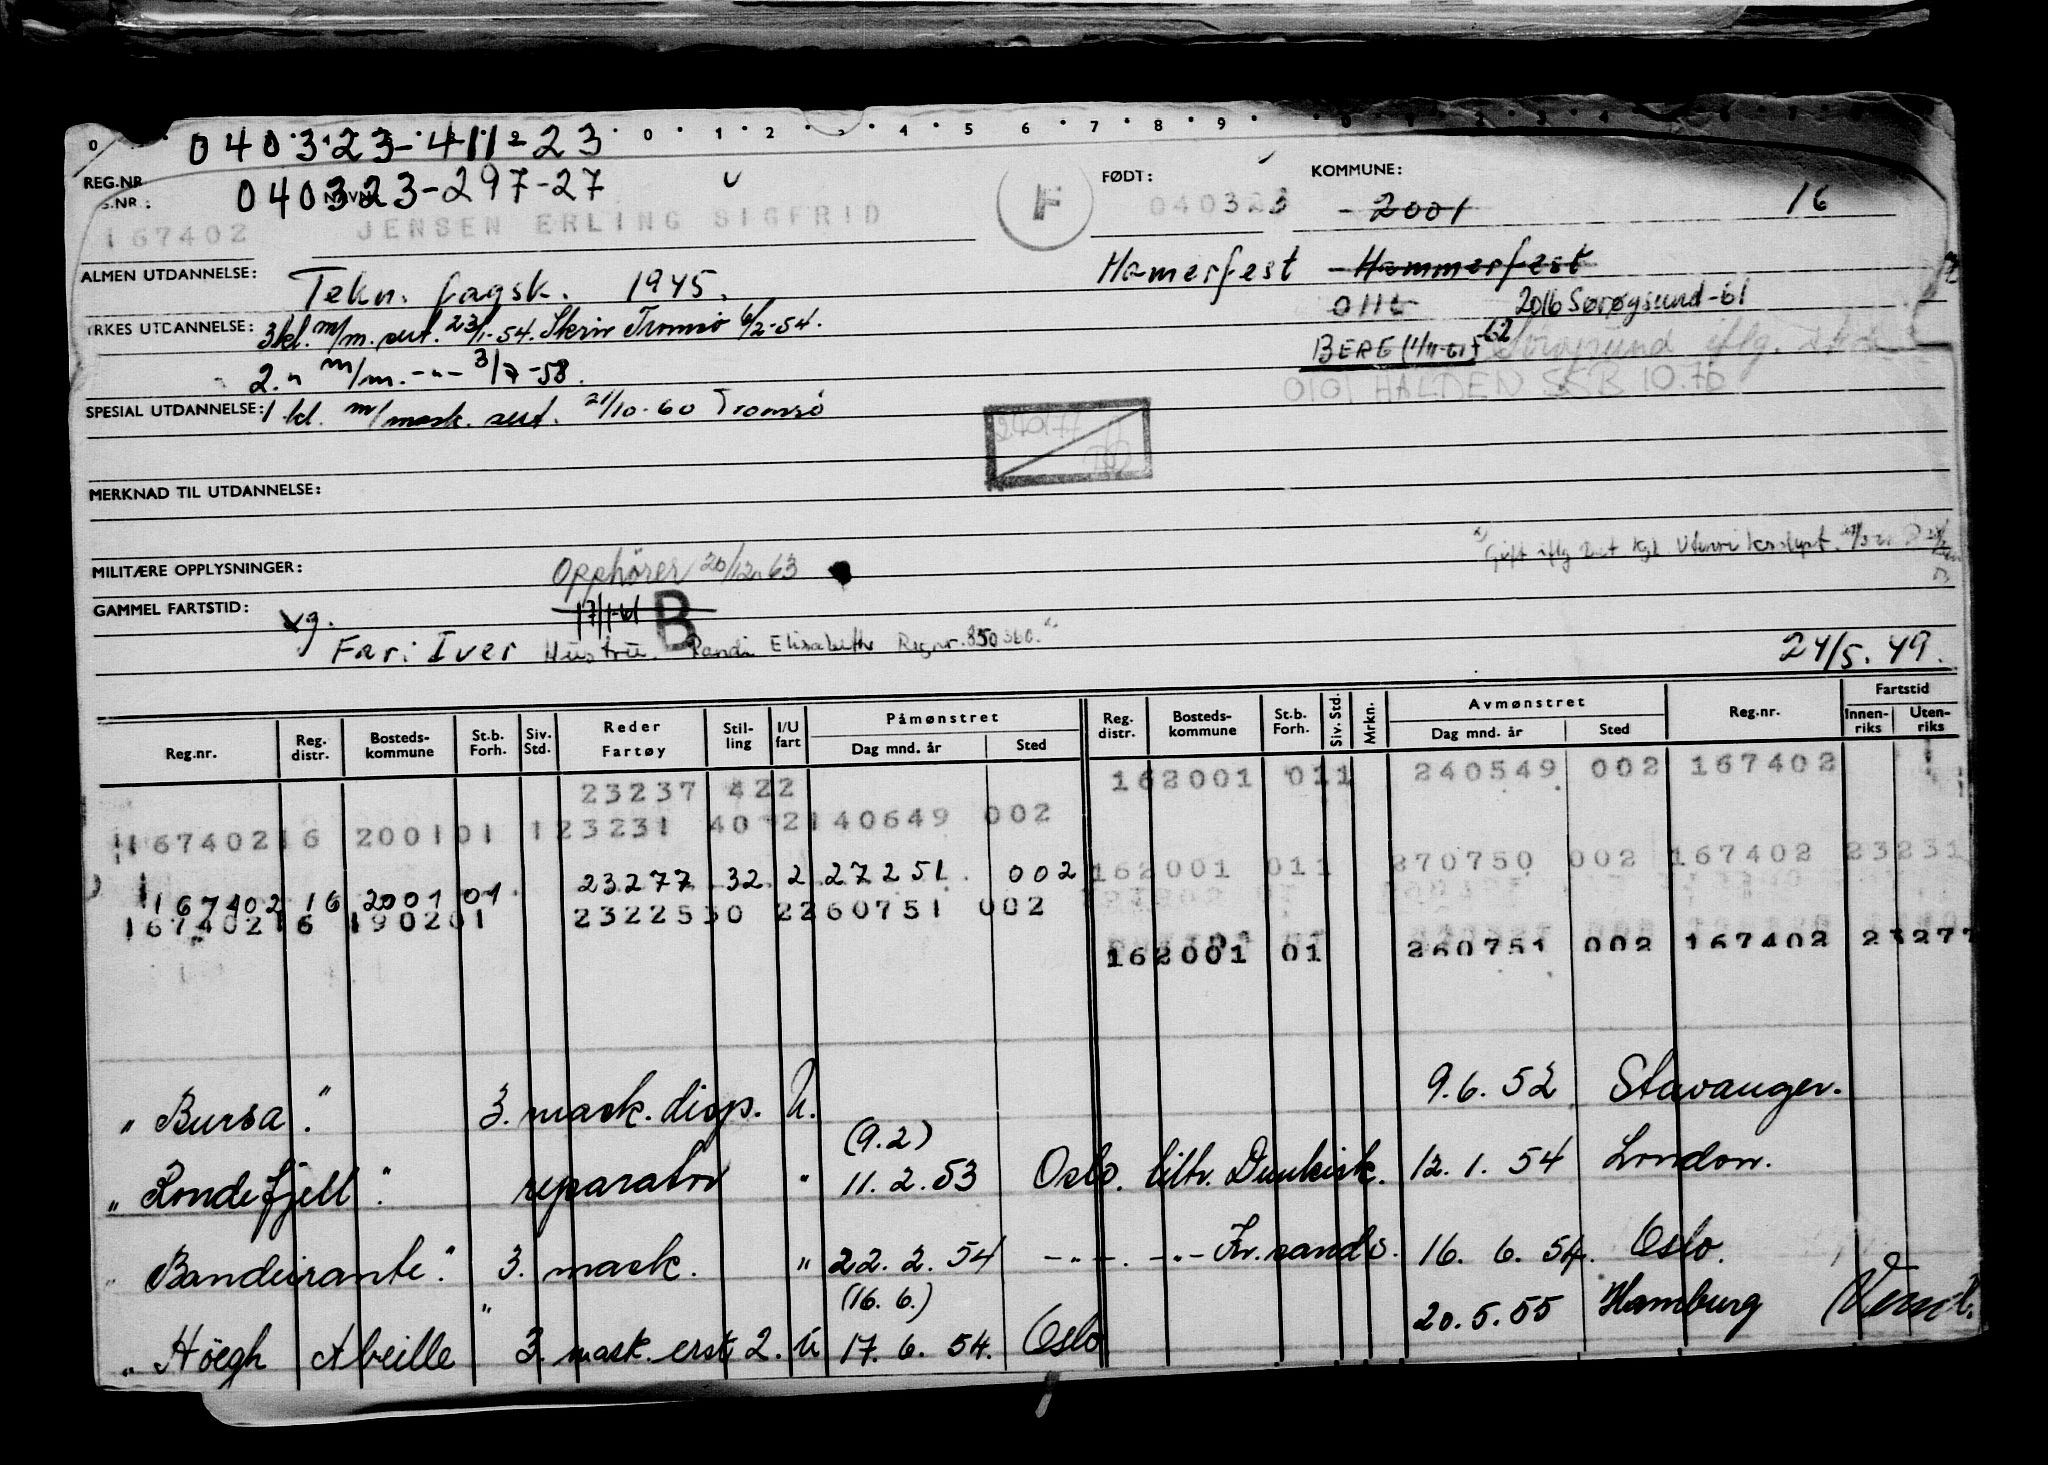 040323-411-23
REG.NR NAVN: 040323-297-27 FØDT: KOMMUNE:
S.NR:
167402 JENSEN ERLING SIGFRID F 040323 - 2001 16
ALMEN UTDANNELSE: Tekn. fagsk. 1945. Hamerfest - Hammerfest
0115 2016 Sørøysund-61
YRKES UTDANNELSE: 3kl. m/m. sert. 23/1-54. Skriv Tromsø 6/2-54.
BERG (1/11-61) -62 Sörøysund iflg.
2. " m/m. -"- 3/7-58.
0101 HALDEN SSB 10.70
SPESIAL UTDANNELSE: 1 kl. m/mask. sert. 21/10-60 Tromsø
MERKNAD TIL UTDANNELSE:
Gift iflg Det Kgl. Utenriksdept.
MILITÆRE OPPLYSNINGER: Opphører 20/12-63
GAMMEL FARTSTID: 17/1-61 B
Far: Iver Hustru. Randi Elisabeth Regnr. 850360. 24/5. 49.
Reg.nr. Reg. distr. Bosteds-kommune St.b. Forh. Siv. Std. Reder Fartøy Stil-ling I/U fart Påmønstret Dag mnd. år Sted Reg. distr. Bosteds-kommune St.b. Forh. Siv. Std. Mrkn. Avmønstret Dag mnd. år Sted Reg.nr. Fartstid Innen-riks Uten-riks
23237 422 162001 011 240549 002 167402
167402 16 200101 123231 40 2 140649 002
162001 011 270750 002 167402 23231
167402 16 2001 01 23277 32 2 27251 002
167402 16 190201 23225 30 2 260751 002
162001 01 260751 002 167402 23277
" Bursa " 3. mask. disp. U. 9.6.52 Stavanger.
(9.2)
" Rondefjell " reparatør " 11.2.53 Oslo. tiltr. Dunkirk. 12.1.54 London.
" Bandeirante " 3. mask. " 22.2.54 -"- -"- Kr.sand S. 16.6.54. Oslo.
(16.6.)
" Höegh Abeille " 3. mask. erst 2. U 17.6.54. Oslo 20.5.55 Hamburg